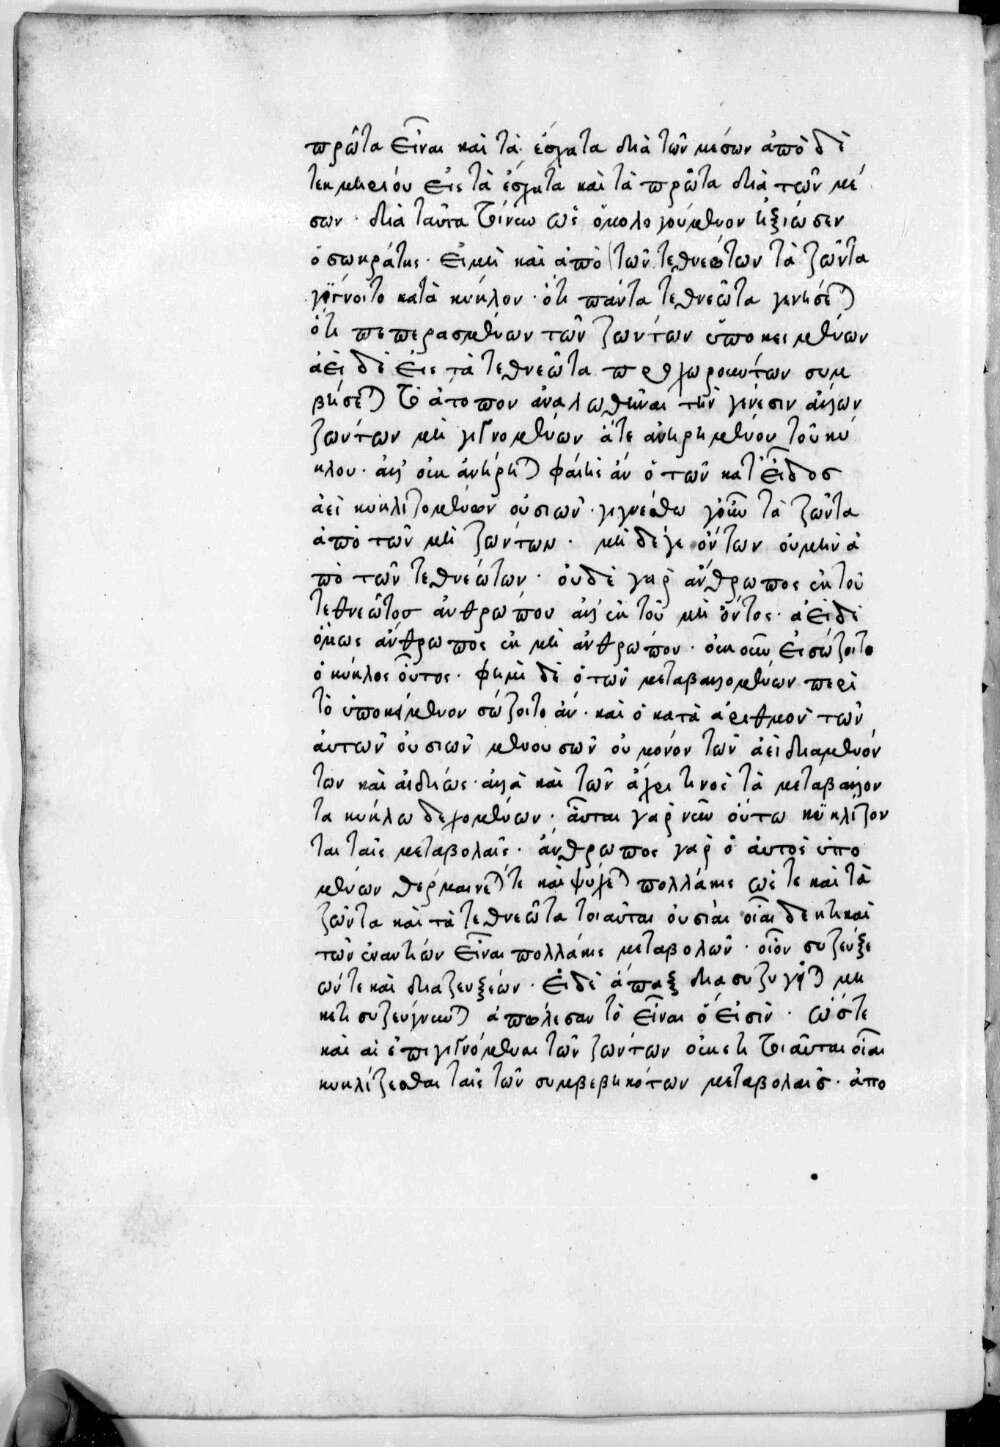 πρῶτα εἶναι καὶ τὰ ἔσχατα διὰ τῶν μέσων ἀπὸ δὲ
τεκμηρίου εἰς τὰ ἔσχατα καὶ τὰ πρῶτα διὰ τῶν μέ
σων· διὰ ταῦτα τοίνυν ὡς ὁμολογούμενον ἠξίωσεν
ὁ σωκράτης· εἰ μὴ καὶ ἀπὸ τῶν τεθνεώτων τὰ ζῶντα
γίγνοιτο κατὰ κύκλον· ὅτι πάντα τεθνεῶτα γενήσεται
ὅτι πεπερασμένων τῶν ζώντων ὑποκειμένων
ἀεὶ δὲ εἰς τὰ τεθνεῶτα προχωρούντων συμ
βήσεται τὸ ἄτοπον ἀναλωθῆναι τὴν γένεσιν ἄλλων
ζώντων μὴ γιγνομένων ἅτε ἀνῃρημένου τοῦ κύ
κλου· ἀλλ' οὐκ ἀνῄρηται φαίη ἂν ὁ τῶν κατ' εἶδος
ἀεὶ κυκλιζομένων οὐσιῶν· γιγνέσθω γοῦν τὰ ζῶντα
ἀπὸ τῶν μὴ ζώντων· μὴ δέ γε ὄντων οὐ μὴν ἀ
πὸ τῶν τεθνεώτων· οὐδὲ γὰρ ἄνθρωπος ἐκ τοῦ
τεθνεῶτος ἀνθρώπου ἀλλ' ἐκ τοῦ μὴ ὄντος· ἀεὶ δὲ
ὅμως ἄνθρωπος ἐκ μὴ ἀνθρώπου· οὐκοῦν εἰ σώζοιτο
ὁ κύκλος οὗτος· φημὶ δὲ ὁ τῶν μεταβαλλομένων περὶ
τὸ ὑποκείμενον σώζοιτο ἄν· καὶ ὁ κατὰ ἀριθμὸν τῶν
αὐτῶν οὐσιῶν μενουσῶν οὐ μόνον τῶν ἀεὶ διαμενόν
των καὶ ἀιδίως· ἀλλὰ καὶ τῶν ἄχρι τινὸς τὰ μεταβάλλον
τα κύκλω δεχομένων· αὗται γὰρ νῦν οὕτω κυκλίζον
ται ταῖς μεταβολαῖς· ἄνθρωπος γὰρ ὁ αὐτὸς ὑπο
μένων θερμαίνεταί τε καὶ ψύχεται πολλάκις ὥστε καὶ τὰ
ζῶντα καὶ τὰ τεθνεῶτα τοιαῦται οὐσίαι οἷαι δεκτικαὶ
τῶν ἐναντίων εἶναι πολλάκις μεταβολῶν· οἷον συζεύξε
ών τε καὶ διαζευξεών· εἰ δὲ ἅπαξ διασυζυγῇ μη
κέτι συζεύγνυται ἀπώλεσαν τὸ εἶναι ὅ εἰσιν· ὥστε
καὶ αἱ ἐπιγιγνόμεναι τῶν ζώντων οὐκέτι τοιαῦται οἷαι
κυκλίζεσθαι ταῖς τῶν συμβεβηκότων μεταβολαῖς· ἀπο